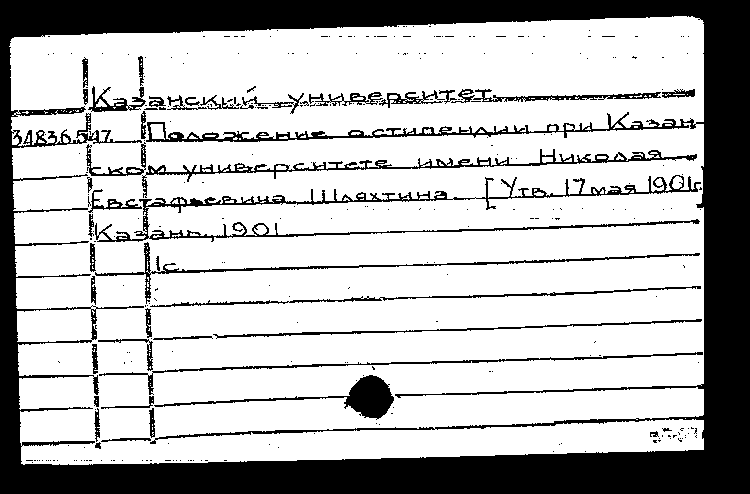 Казанский университет.
34836.547. Положение о стипендии при Казан-
ском университете имени Николая
Евстафьевича Шляхтина. [Утв. 17 мая 1901г.]
Казань, 1901.
1с.